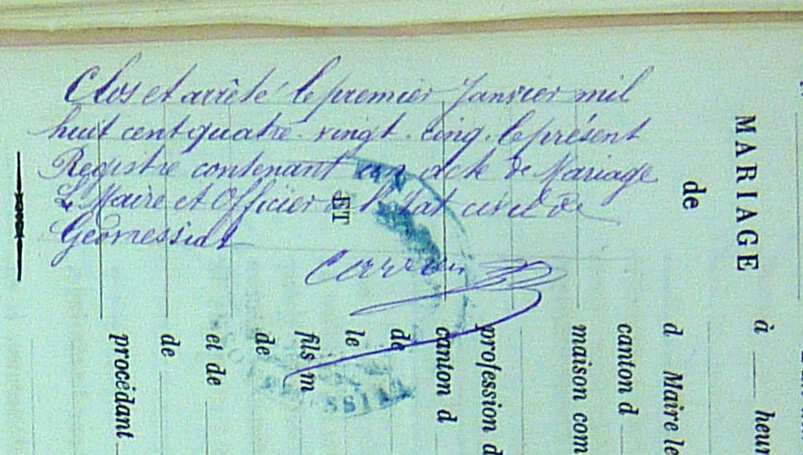 Clos et arrêté le premier Janvier mil
huit cent quatre-vingt-cinq, le présent
Registre contenant un acte de Mariage
Le Maire et Officier de l'Etat civil de
Géovressiat
MARIAGE
de
ET
à heur
d Maire le
canton d
maison com
profession d
canton d
de
le
fils m
de
et de
de
procédant